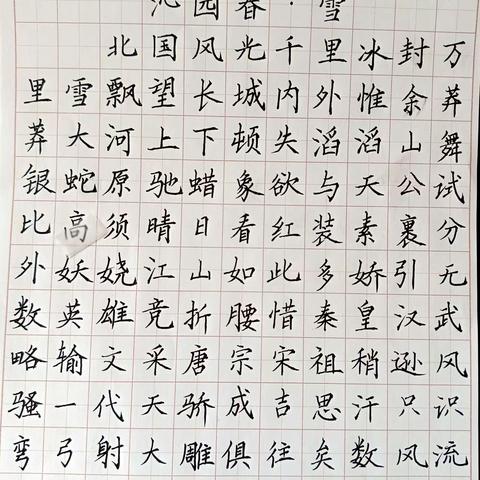 沁园春·雪
北国风光千里冰封万
里雪飘望长城内外惟余莽
莽大河上下顿失滔滔山舞
银蛇原驰蜡象欲与天公试
比高须晴日看红装素裹分
外妖娆江山如此多娇引无
数英雄竞折腰惜秦皇汉武
略输文采唐宗宋祖稍逊风
骚一代天骄成吉思汗只识
弯弓射大雕俱往矣数风流